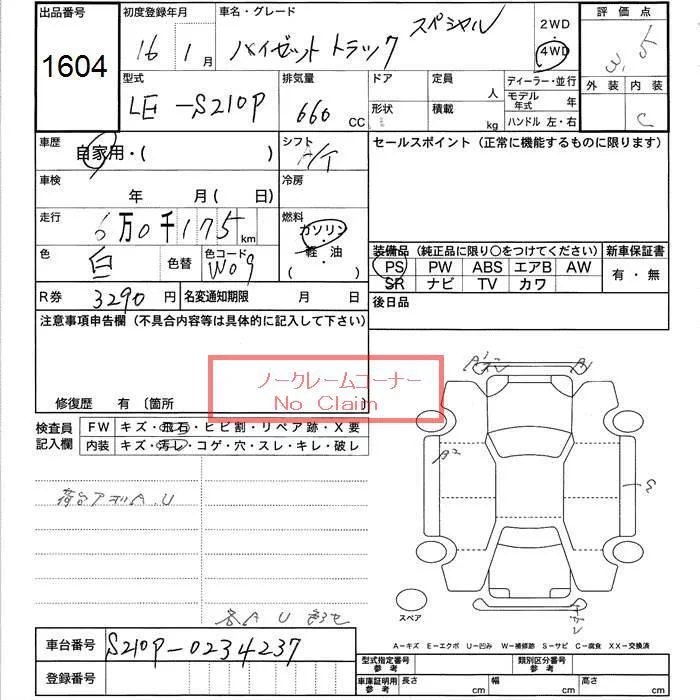 出品番号 初度登録年月 車名・グレード 2WD 評価点
1604 16 1月 ハイゼットトラック スペシャル 4WD 3.5
型式 排気量 ドア 定員 人 ディーラー・並行 外装 内装
LE-S210P 660 CC 形状 積載 kg モデル年式 年 C
ハンドル 左・右
車歴 自家用・( ) シフト A/T セールスポイント (正常に機能するものに限ります)
車検 年 月(日) 冷房
走行 6万0千175km 燃料 ガソリン・軽油・( )
色 白 色替 色コード W09 装備品(純正品に限り○をつけてください) 新車保証書
PS PW ABS エアB AW 有・無
SR ナビ TV カワ
R券 3290円 名変通知期限 月 日 後日品
注意事項申告欄 (不具合内容等は具体的に記入して下さい)
ノークレームコーナー
No Claim
修復歴 有 〔箇所 〕
検査員記入欄 FW キズ・飛石・ヒビ割・リペア跡・X要
内装 キズ・汚レ・コゲ・穴・スレ・キレ・破レ
A1 A
A2
荷台アオリA.U
スペア
各AU
A-キズ E-エクボ U-凹み W-補修跡 S-サビ C-腐食 XX-交換済
車台番号 S210P-0234237
型式指定番号 参考 類別区分番号 参考
登録番号 車庫証明用 参考 長さ cm 幅 cm 高さ cm